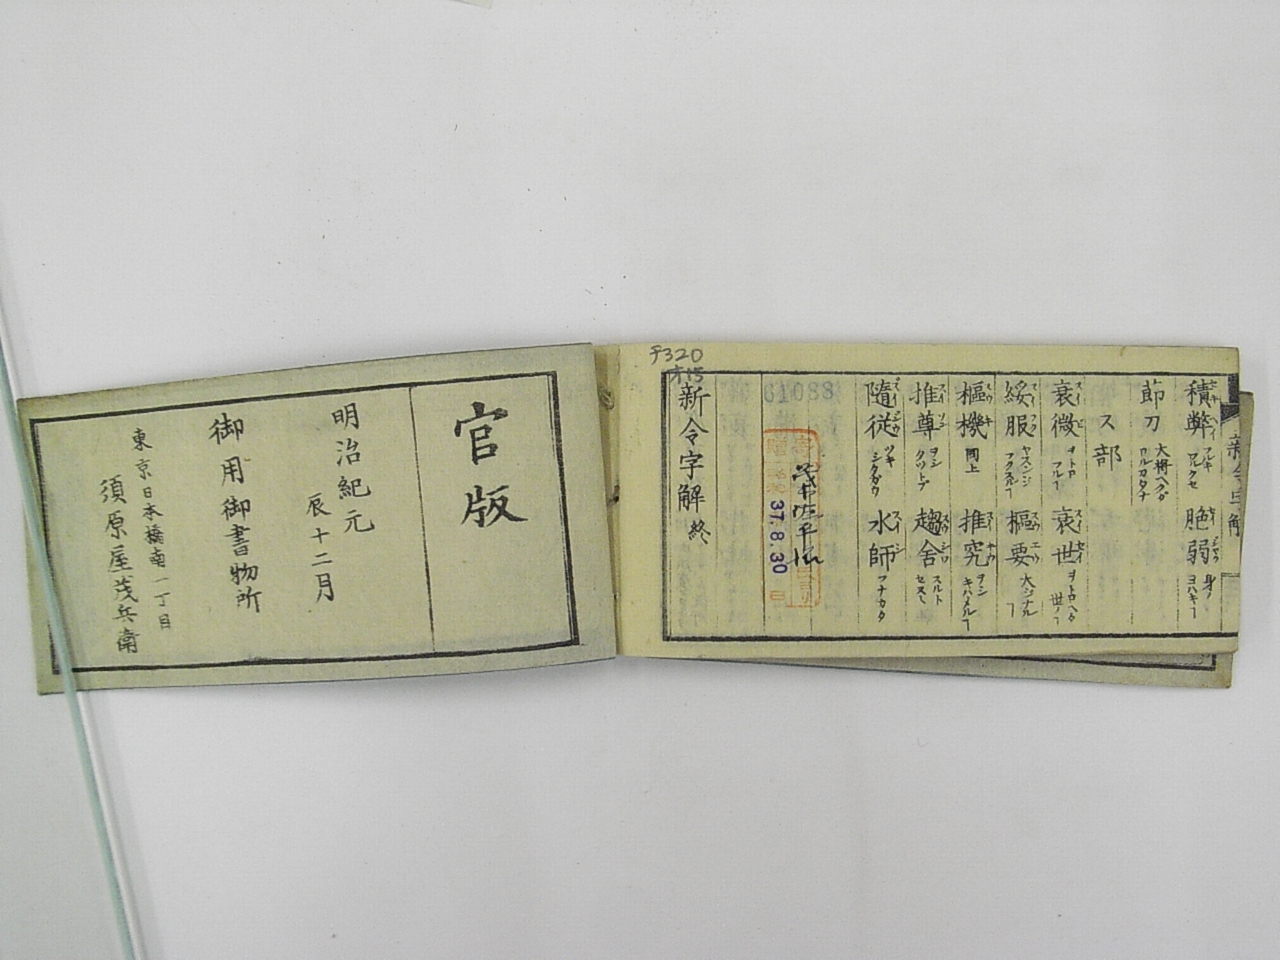 積弊 フルキ ワルクセ 脆弱 身ノ ヨハキー
節刀 大将ヘクダ
ス部
衰微 ヲトロ フルー 衰世 ヲトロヘタ 世ノー
綏服 ヤスンジ フクスルー 樞要 大ジナルー
樞機 同上 推究 ヲシ キハメルー
推尊 ヲシ タツトブ 趨舎 スルト セヌー
隨従 ツキ シタガウ 水師 フナカタ
61088
37.8.30
新令字解 終
〒320
官版
明治紀元
辰十二月
御用御書物所
東京日本橋南一丁目
須原屋茂兵衛